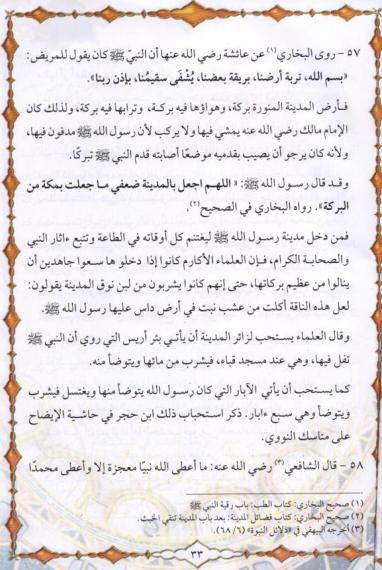 ٥٧ - روى البخاري(١) عن عائشة رضي الله عنها أن النبيّ ﷺ كان يقول للمريض:
«بسم الله، تربة أرضنا، بريقة بعضنا، يُشْفَى سقيمُنا، بإذن ربنا».
فـأرض المدينة المنورة بركة، وهواؤها فيه بركـة، وترابها فيه بركة، ولذلك كان
الإمام مالك رضي الله عنه يمشي فيها ولا يركب لأن رسول الله ﷺ مدفون فيها،
ولأنه كان يرجو أن يصيب بقدميه موضعًا أصابته قدم النبي ﷺ تبركًا.
وقـد قال رسـول الله ﷺ: «اللهـم اجعل بالمدينة ضعفي مـا جعلت بمكة من
البركة». رواه البخاري في الصحيح(٢).
فمن دخل مدينة رسـول الله ﷺ ليغتنم كل أوقاته في الطاعة وتتبع ءاثار النبي
والصحـابة الكرام، فـإن العلماء الأكارم كانوا إذا دخلو ها سـعوا جاهدين أن
ينالوا من عظيم بركاتها، حتى إنهم كانوا يشربون من لبن نوق المدينة يقولون:
لعل هذه الناقة أكلت من عشب نبت في أرض داس عليها رسول الله ﷺ.
وقال العلماء يسـتحب لزائر المدينة أن يأتـي بئر أريس التي روي أن النبي ﷺ
تفل فيها، وهي عند مسجد قباء، فيشرب من مائها ويتوضأ منه.
كما يسـتحب أن يأتي الآبار التي كان رسـول الله يتوضأ منها ويغتسل فيشرب
ويتوضأ وهي سـبع ءابار. ذكر استحباب ذلك ابن حجر في حاشـية الإيضاح
على مناسك النووي.
٥٨ - قال الشافعي(٣) رضي الله عنه: ما أعطى الله نبيًّا معجزة إلا وأعطى محمدًا
(١) صحيح البخاري: كتاب الطب: باب رقية النبي ﷺ
(٢) صحيح البخاري: كتاب فضائل المدينة: بعد باب المدينة تنفي الخبث.
(٣) أخرجه البيهقي في «دلائل النبوة» (٦/ ٦٨).
٣٣